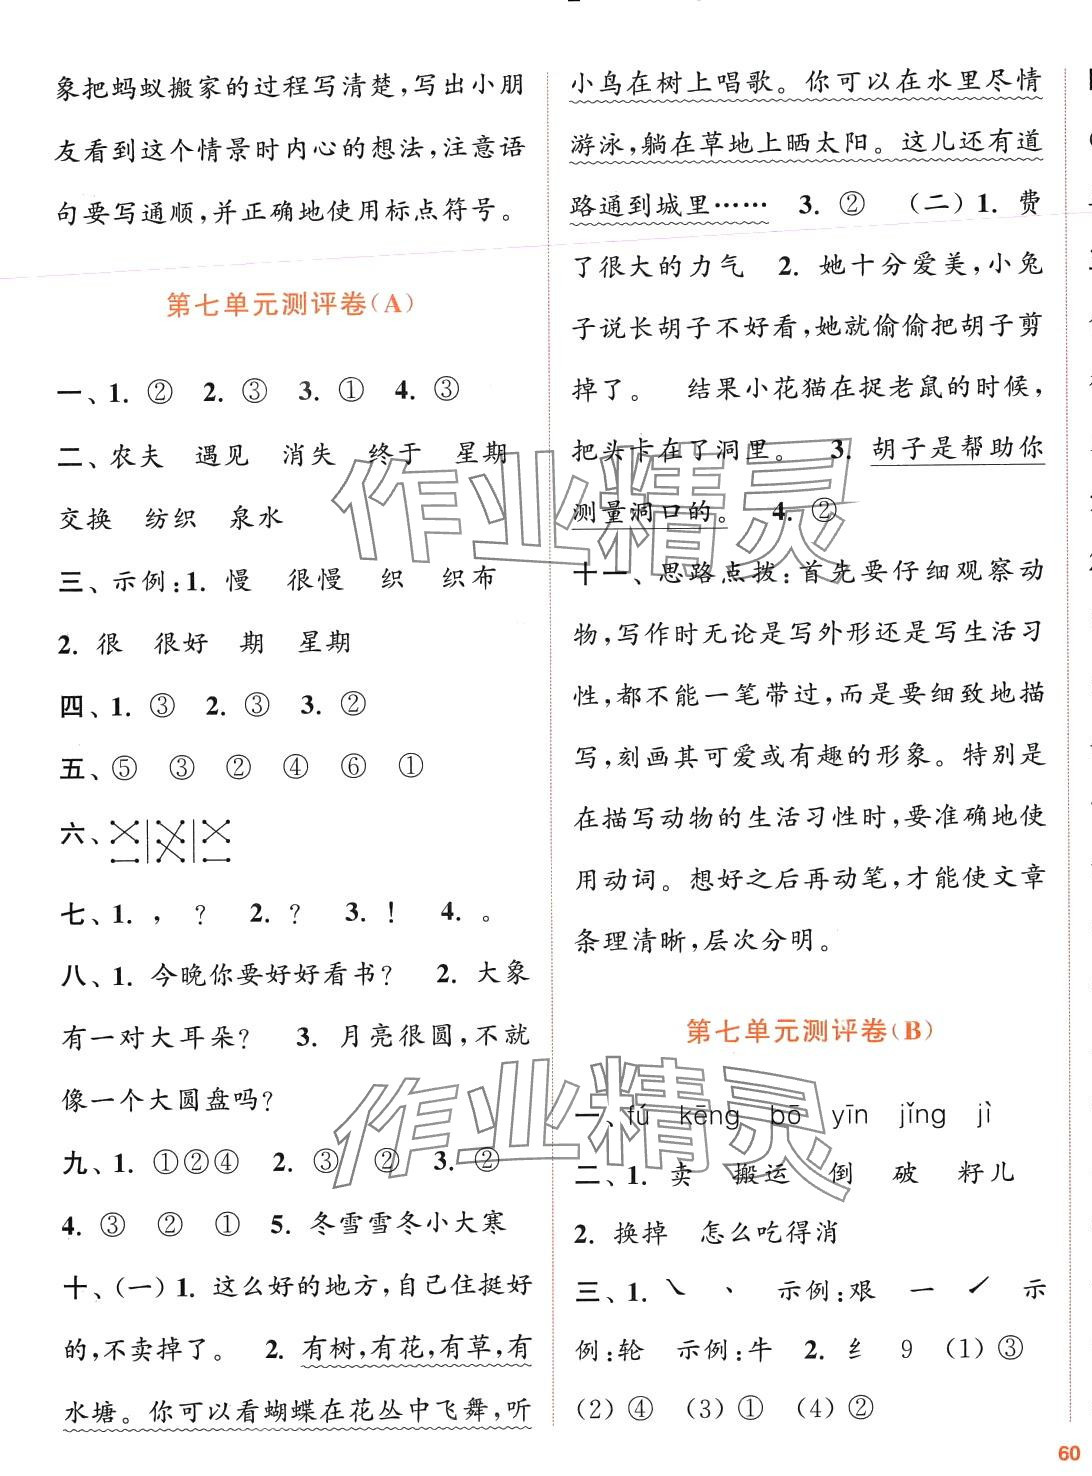 象把蚂蚁搬家的过程写清楚,写出小朋
友看到这个情景时内心的想法,注意语
句要写通顺,并正确地使用标点符号。
第七单元测评卷(A)
一、1. ② 2. ③ 3. ① 4. ③
二、农夫 遇见 消失 终于 星期
交换 纺织 泉水
三、示例:1. 慢 很慢 织 织布
2. 很 很好 期 星期
四、1. ③ 2. ③ 3. ②
五、⑤ ③ ② ④ ⑥ ①
六、
七、1. , ? 2. ? 3. ! 4. 。
八、1. 今晚你要好好看书? 2. 大象
有一对大耳朵? 3. 月亮很圆,不就
像一个大圆盘吗?
九、1. ①②④ 2. ③ ② 3. ②
4. ③ ② ① 5. 冬雪雪冬小大寒
十、(一)1. 这么好的地方,自己住挺好
的,不卖掉了。 2. 有树,有花,有草,有
水塘。你可以看蝴蝶在花丛中飞舞,听
小鸟在树上唱歌。你可以在水里尽情
游泳,躺在草地上晒太阳。这儿还有道
路通到城里…… 3. ② (二)1. 费
了很大的力气 2. 她十分爱美,小兔
子说长胡子不好看,她就偷偷把胡子剪
掉了。 结果小花猫在捉老鼠的时候,
把头卡在了洞里。 3. 胡子是帮助你
测量洞口的。 4. ②
十一、思路点拨:首先要仔细观察动
物,写作时无论是写外形还是写生活习
性,都不能一笔带过,而是要细致地描
写,刻画其可爱或有趣的形象。特别是
在描写动物的生活习性时,要准确地使
用动词。想好之后再动笔,才能使文章
条理清晰,层次分明。
第七单元测评卷(B)
一、fú kēng bō yīn jǐng jì
二、1. 卖 搬运 倒 破 籽儿
2. 换掉 怎么吃得消
三、1. ㇏ 丶 示例:艰 一 ㇀ 示
例:轮 示例:牛 2. 纟 9 (1)③
(2)④ (3)① (4)②
60
作业精灵
作业精灵